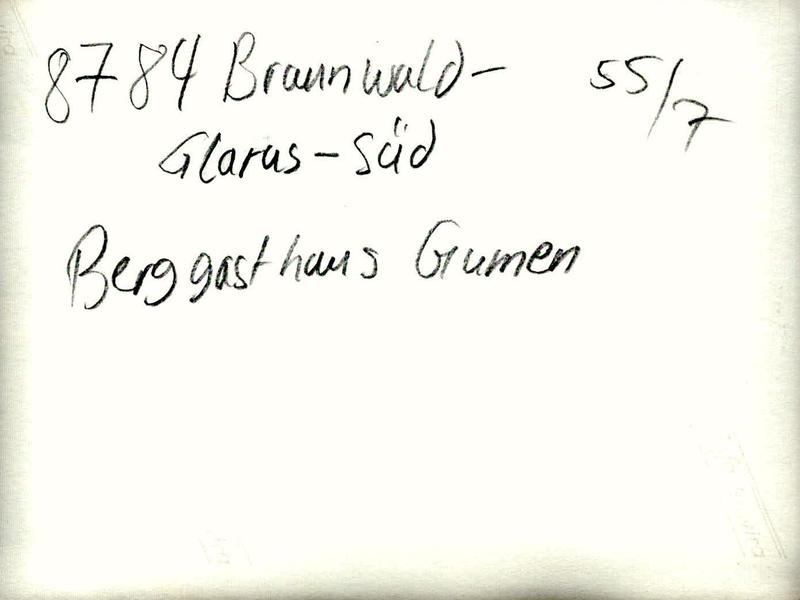 8784 Braunwald- 55/7
Glarus-Süd
Berggasthaus Gumen